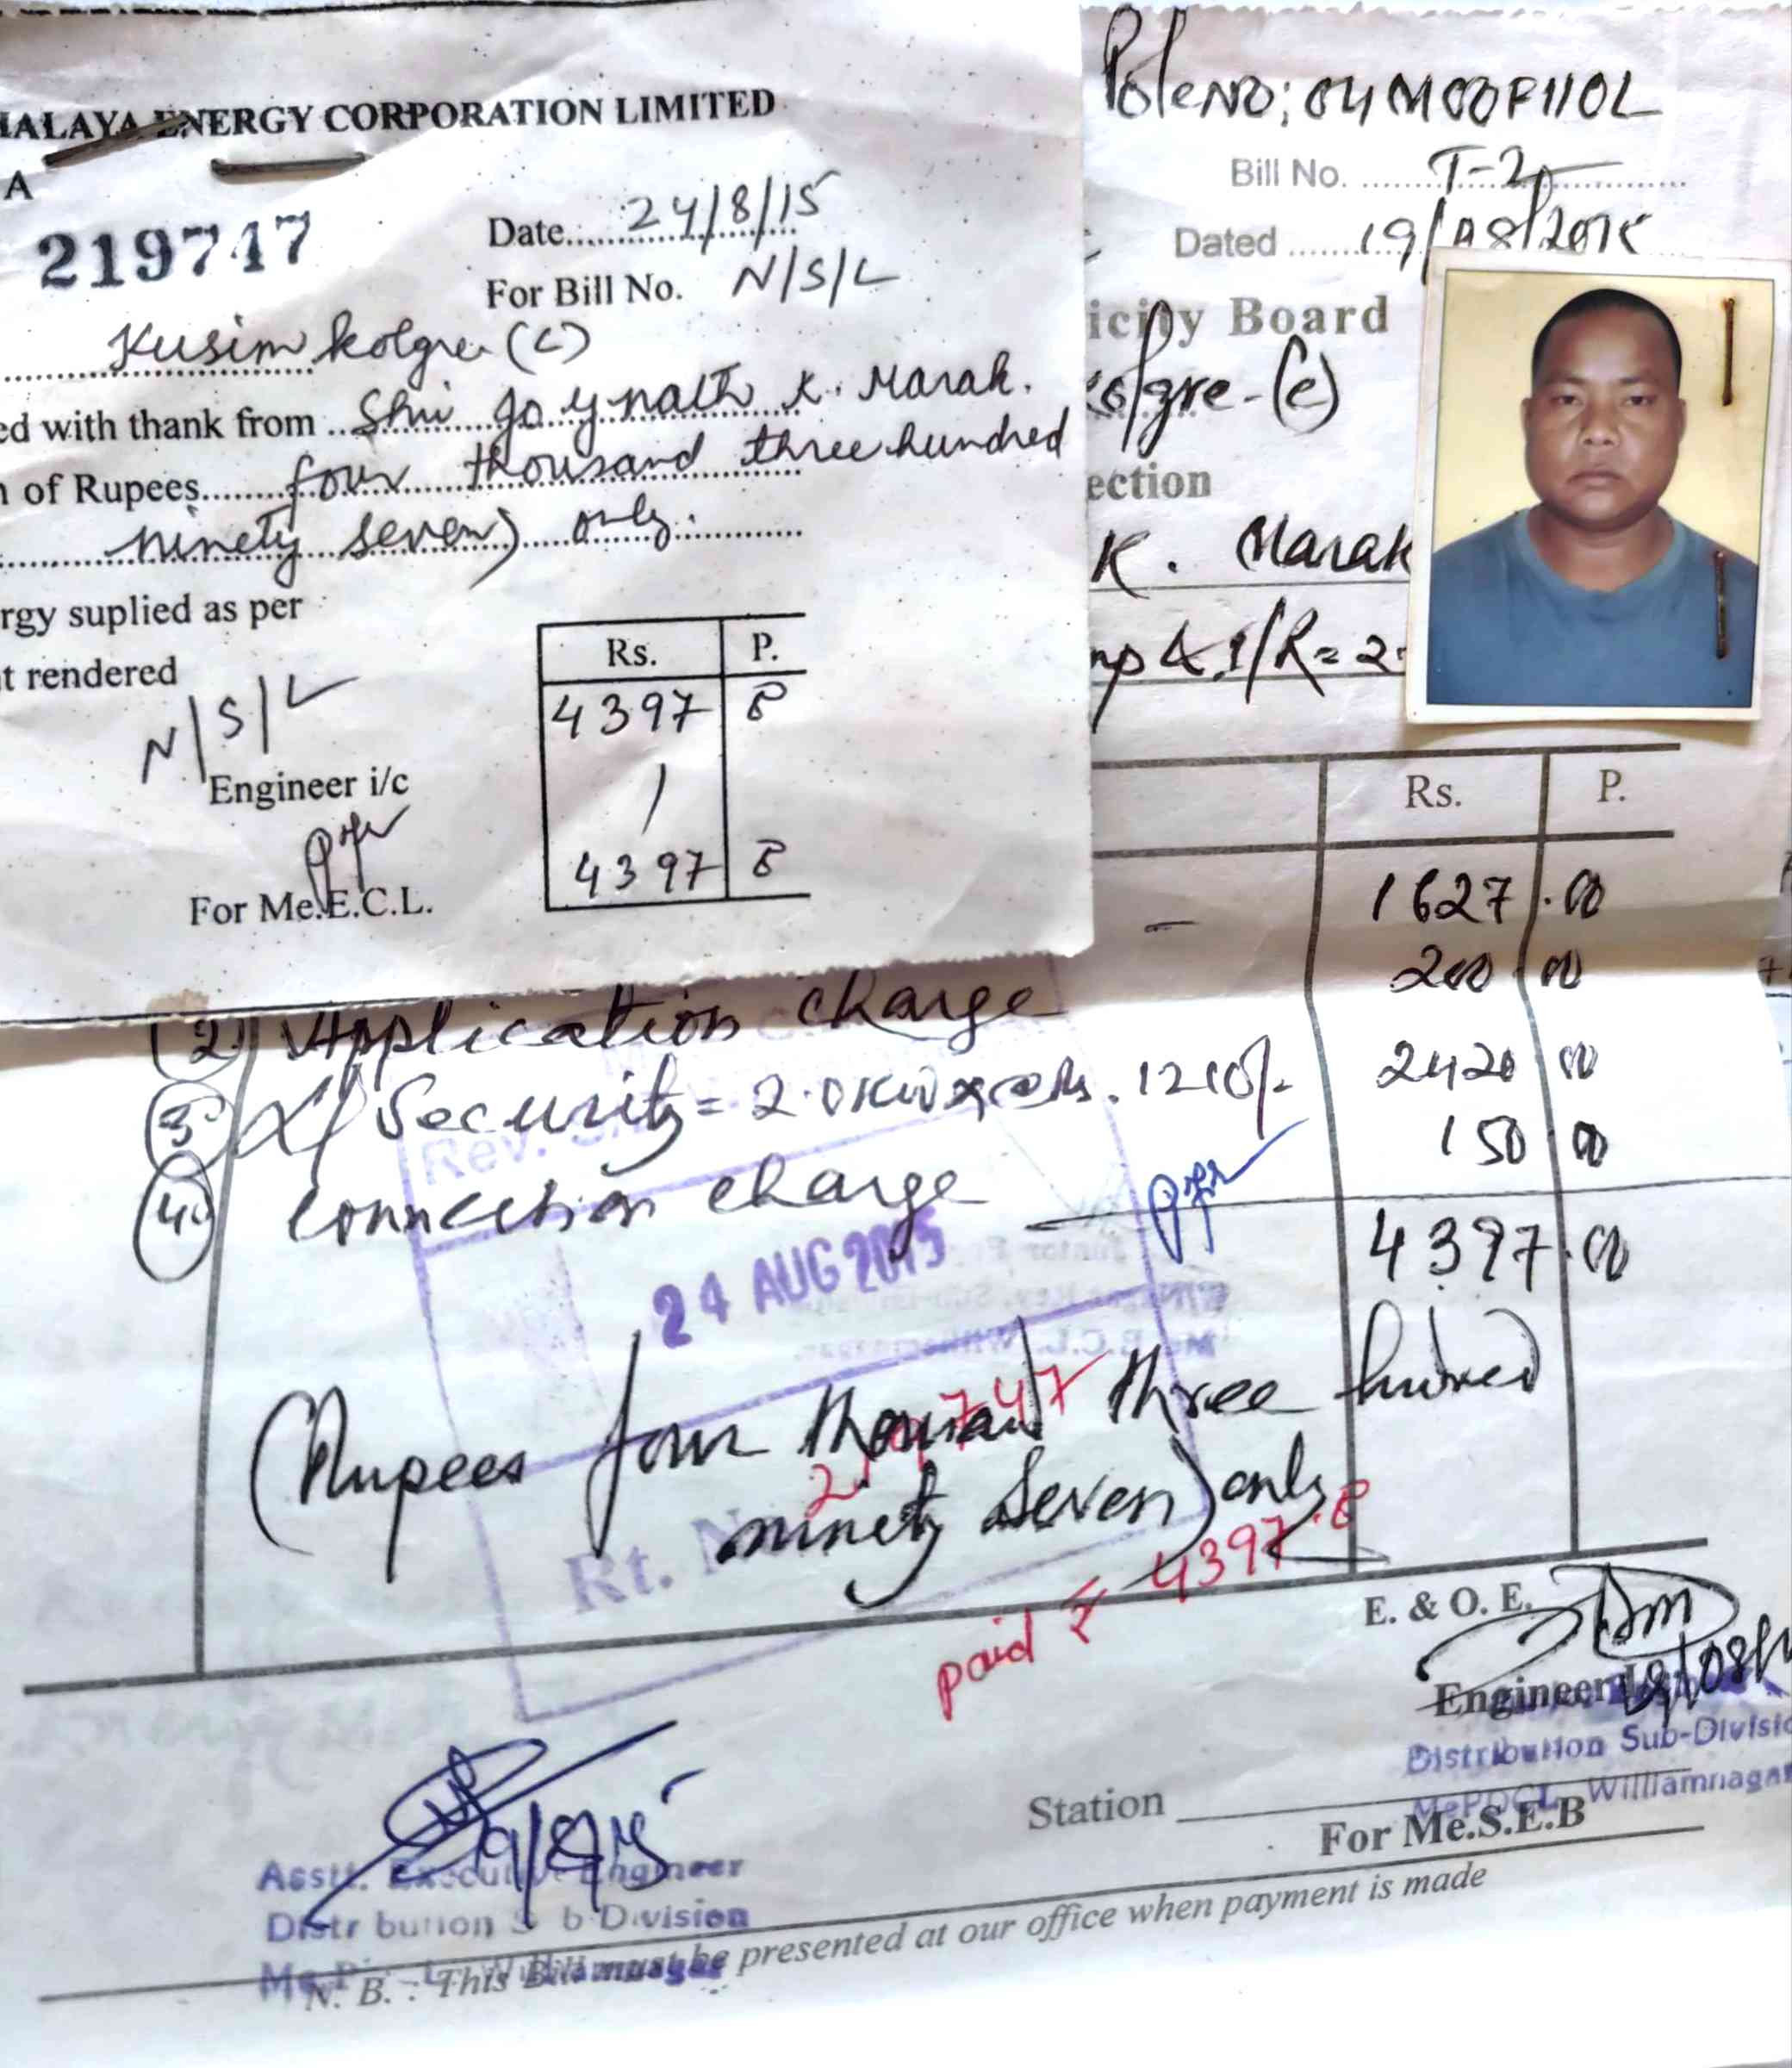 HALAYA ENERGY CORPORATION LIMITED
A
219747
Date 24/8/15
For Bill No. N/S/L
Kusim kolgre (C)
ed with thank from Shri Joynath K. Marak.
of Rupees four thousand three hundred
ninety seven) only.
rgy suplied as per
t rendered
N/S/L
Engineer i/c
For Me.E.C.L.
Rs. P.
4397
4397
Pole NO; 04M00F110L
Bill No. T-2
Dated 19/08/2015
icity Board
kolgre-(c)
ection
K. Marak
Rs. P.
1627.00
200 00
(2) Application charge
(3) Security = 2.0KW x @ Rs. 1210/- 2420 00
(4) Connection charge 150 00
4397.00
24 AUG 2015
219747
(Rupees four thousand three hundred
ninety Seven) only
paid ₹ 4397
E. & O. E.
Engineer
Distribution Sub-Divisio
MePDCL, Williamnagar
Station
For Me.S.E.B
Asstt. Executive Engineer
Distribution Sub Division
N. B. : This Bill must be presented at our office when payment is made